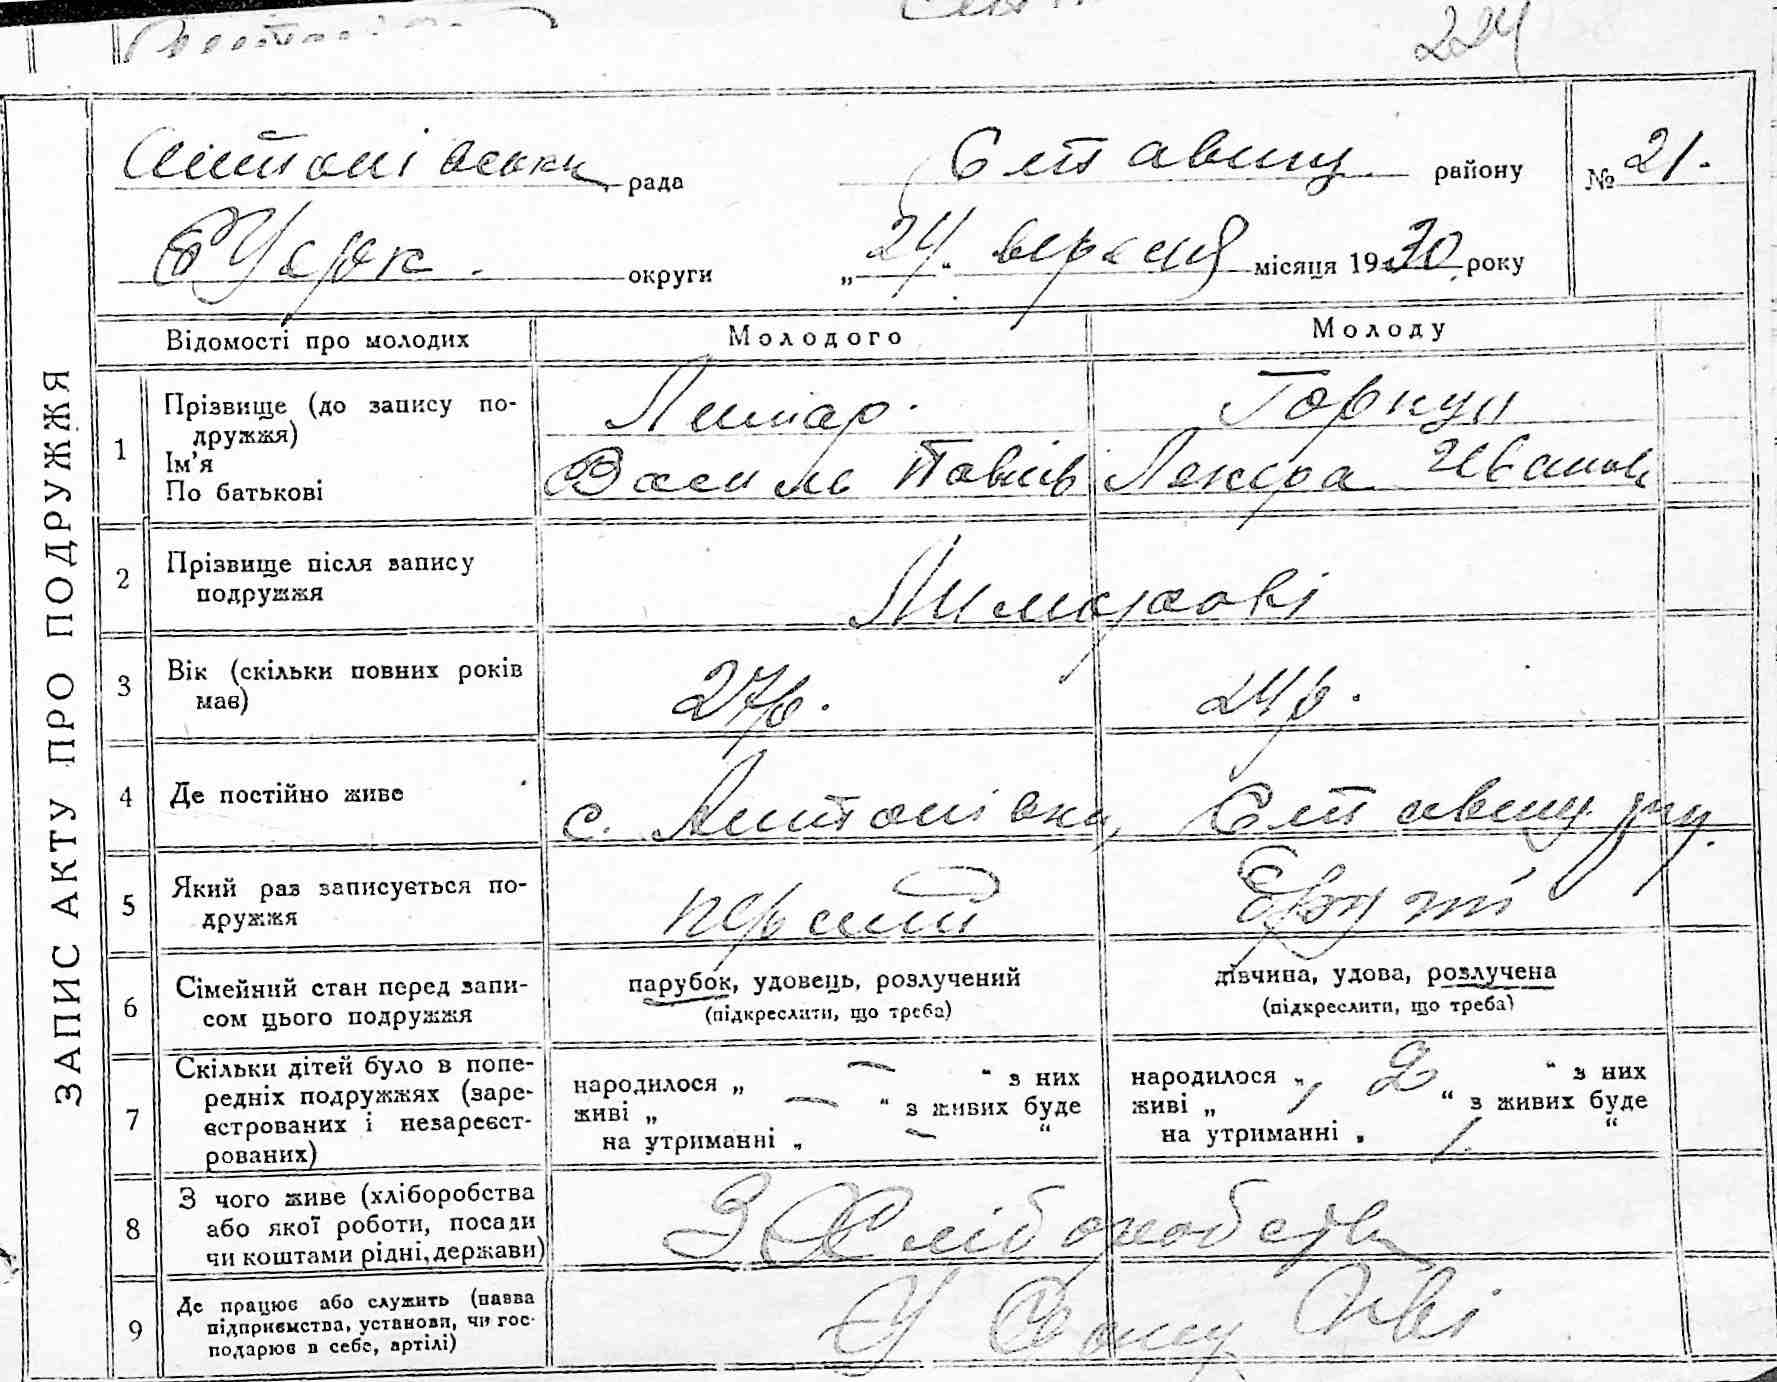 224
ЗАПИС АКТУ ПРО ПОДРУЖЖЯ
Антонівськи рада Ставищ. району № 21.
БЦерк. округи „24“ вересня місяця 1930 року
Відомості про молодих Молодого Молоду
1 Прізвище (до запису по-
дружжя)
Ім'я
По батькові
Лимар. Горкун
Василь Павлів Лекера Иванов
2 Прізвище після запису
подружжя
Лимарові
3 Вік (скільки повних років
має)
27р. 24р.
4 Де постійно живе с. Антонівки, Ставищ. р-ну.
5 Який раз записується по-
дружжя
перший другий
6 Сімейний стан перед запи-
сом цього подружжя
парубок, удовець, розлучений
(підкреслити, що треба)
дівчина, удова, розлучена
(підкреслити, що треба)
7 Скільки дітей було в попе-
редніх подружжях (заре-
єстрованих і незареєст-
рованих)
народилося „ — “ з них
живі „ — “ з живих буде
на утриманні „ — “
народилося „ 2 “ з них
живі „ 1 “ з живих буде
на утриманні „ 1 “
8 З чого живе (хліборобства
або якої роботи, посади
чи коштами рідні, держави)
З Хліборобств
9 Де працює або служить (назва
підприємства, установи, чи гос-
подарює в себе, артілі)
У